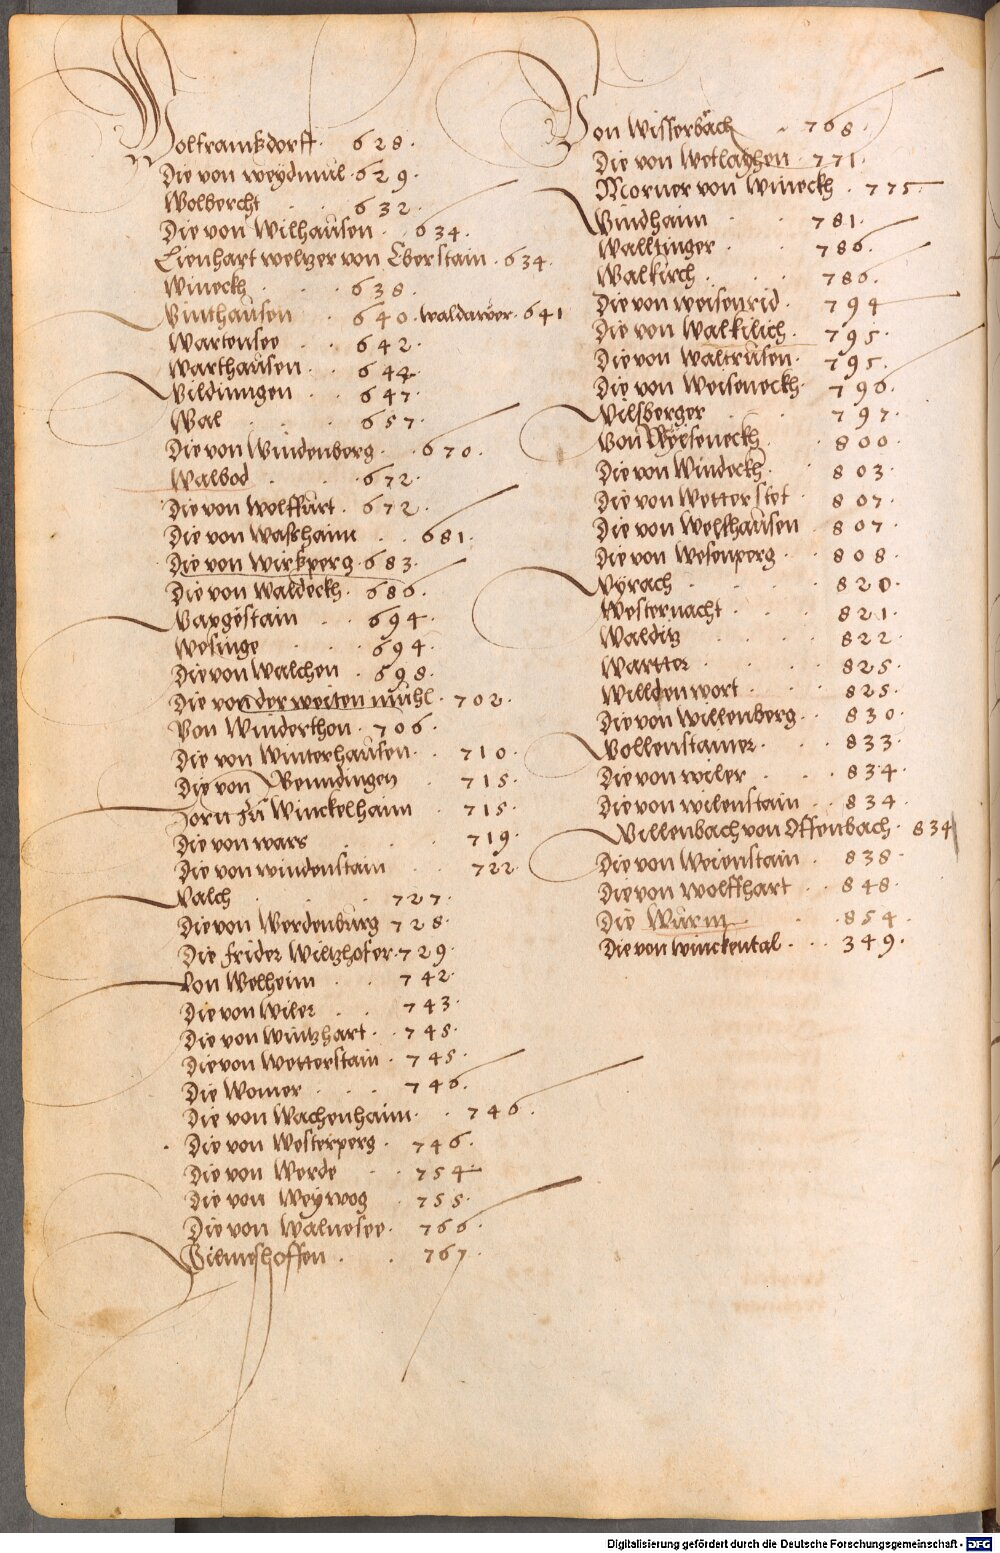 Wolframßdorff · 628 ·
Die von weydmul · 629 ·
Wolbercht · 632 ·
Die von Wilhausen · 634 ·
Lienhart weltzer von Eberstain · 634 ·
Wineckh · 638 ·
Winthausen · 640 · waldawer · 641
Wartensee · 642 ·
Warthausen · 644
Wildinngen · 647 ·
Wal · 657 ·
Die von Windenberg · 670 ·
Walbod · 672 ·
Die von Wolffurt · 672 ·
Die von Waßhaim · 681 ·
Die von Wirßperg · 683 ·
Die von Waldeckh · 686 ·
Waxgestain · 694 ·
Wesinge · 694 ·
Die von Walchen · 698 ·
Die von der weiten mühl · 702 ·
Von Winderthon · 706 ·
Die von Winterhausen · 710 ·
Die von Wenndingen · 715 ·
Horn zu Winckelhaim · 715 ·
Die von wars · 719 ·
Die von windenstain · 722
Walch · 727 ·
Die von Werdenburg 728 ·
Die frider Wiltzhofer · 729 ·
Von Welheim · 742 ·
Die von Wiler · 743 ·
Die von Wintzhart · 745 ·
Die von Wetterstain · 745 ·
Die Womer · 746 ·
Die von Wachenhaim · 746 ·
Die von Westerperg · 746 ·
Die von Werde · 754
Die von Weywog · 755 ·
Die von Walnesee · 766 ·
Wilmeshoffen · 767 ·
Von Wisserbach · 768 ·
Die von Wetlayhen · 771 ·
Morner von Wineckh · 775
Windhaim · 781 ·
Walltinger · 786 ·
Walkirch · 786 ·
Die von weisenrid · 794
Die von Walkilich · 795 ·
Die von Waltrusen · 795 ·
Die von Weiseneckh · 796 ·
Wilsberger · 797 ·
Von Wylseneckh · 800 ·
Die von Windeckh · 803 ·
Die von Wetterstet · 807 ·
Die von Welkhausen · 807 ·
Die von Wesenperg · 808 ·
Wyrach · 820 ·
Westernacht · 821 ·
Walditz · 822 ·
Wartter · 825 ·
Willdenwort · 825 ·
Die von Willenberg · 830 ·
Wollenstainer · 833 ·
Die von wiler · 834 ·
Die von wilenstain · 834 ·
Willenbach von Offenbach · 834
Die von Weienstain · 838 ·
Die von Wolffhart · 848 ·
Die Wurm · 854 ·
Die von winckental · 349 ·
Digitalisierung gefördert durch die Deutsche Forschungsgemeinschaft - DFG